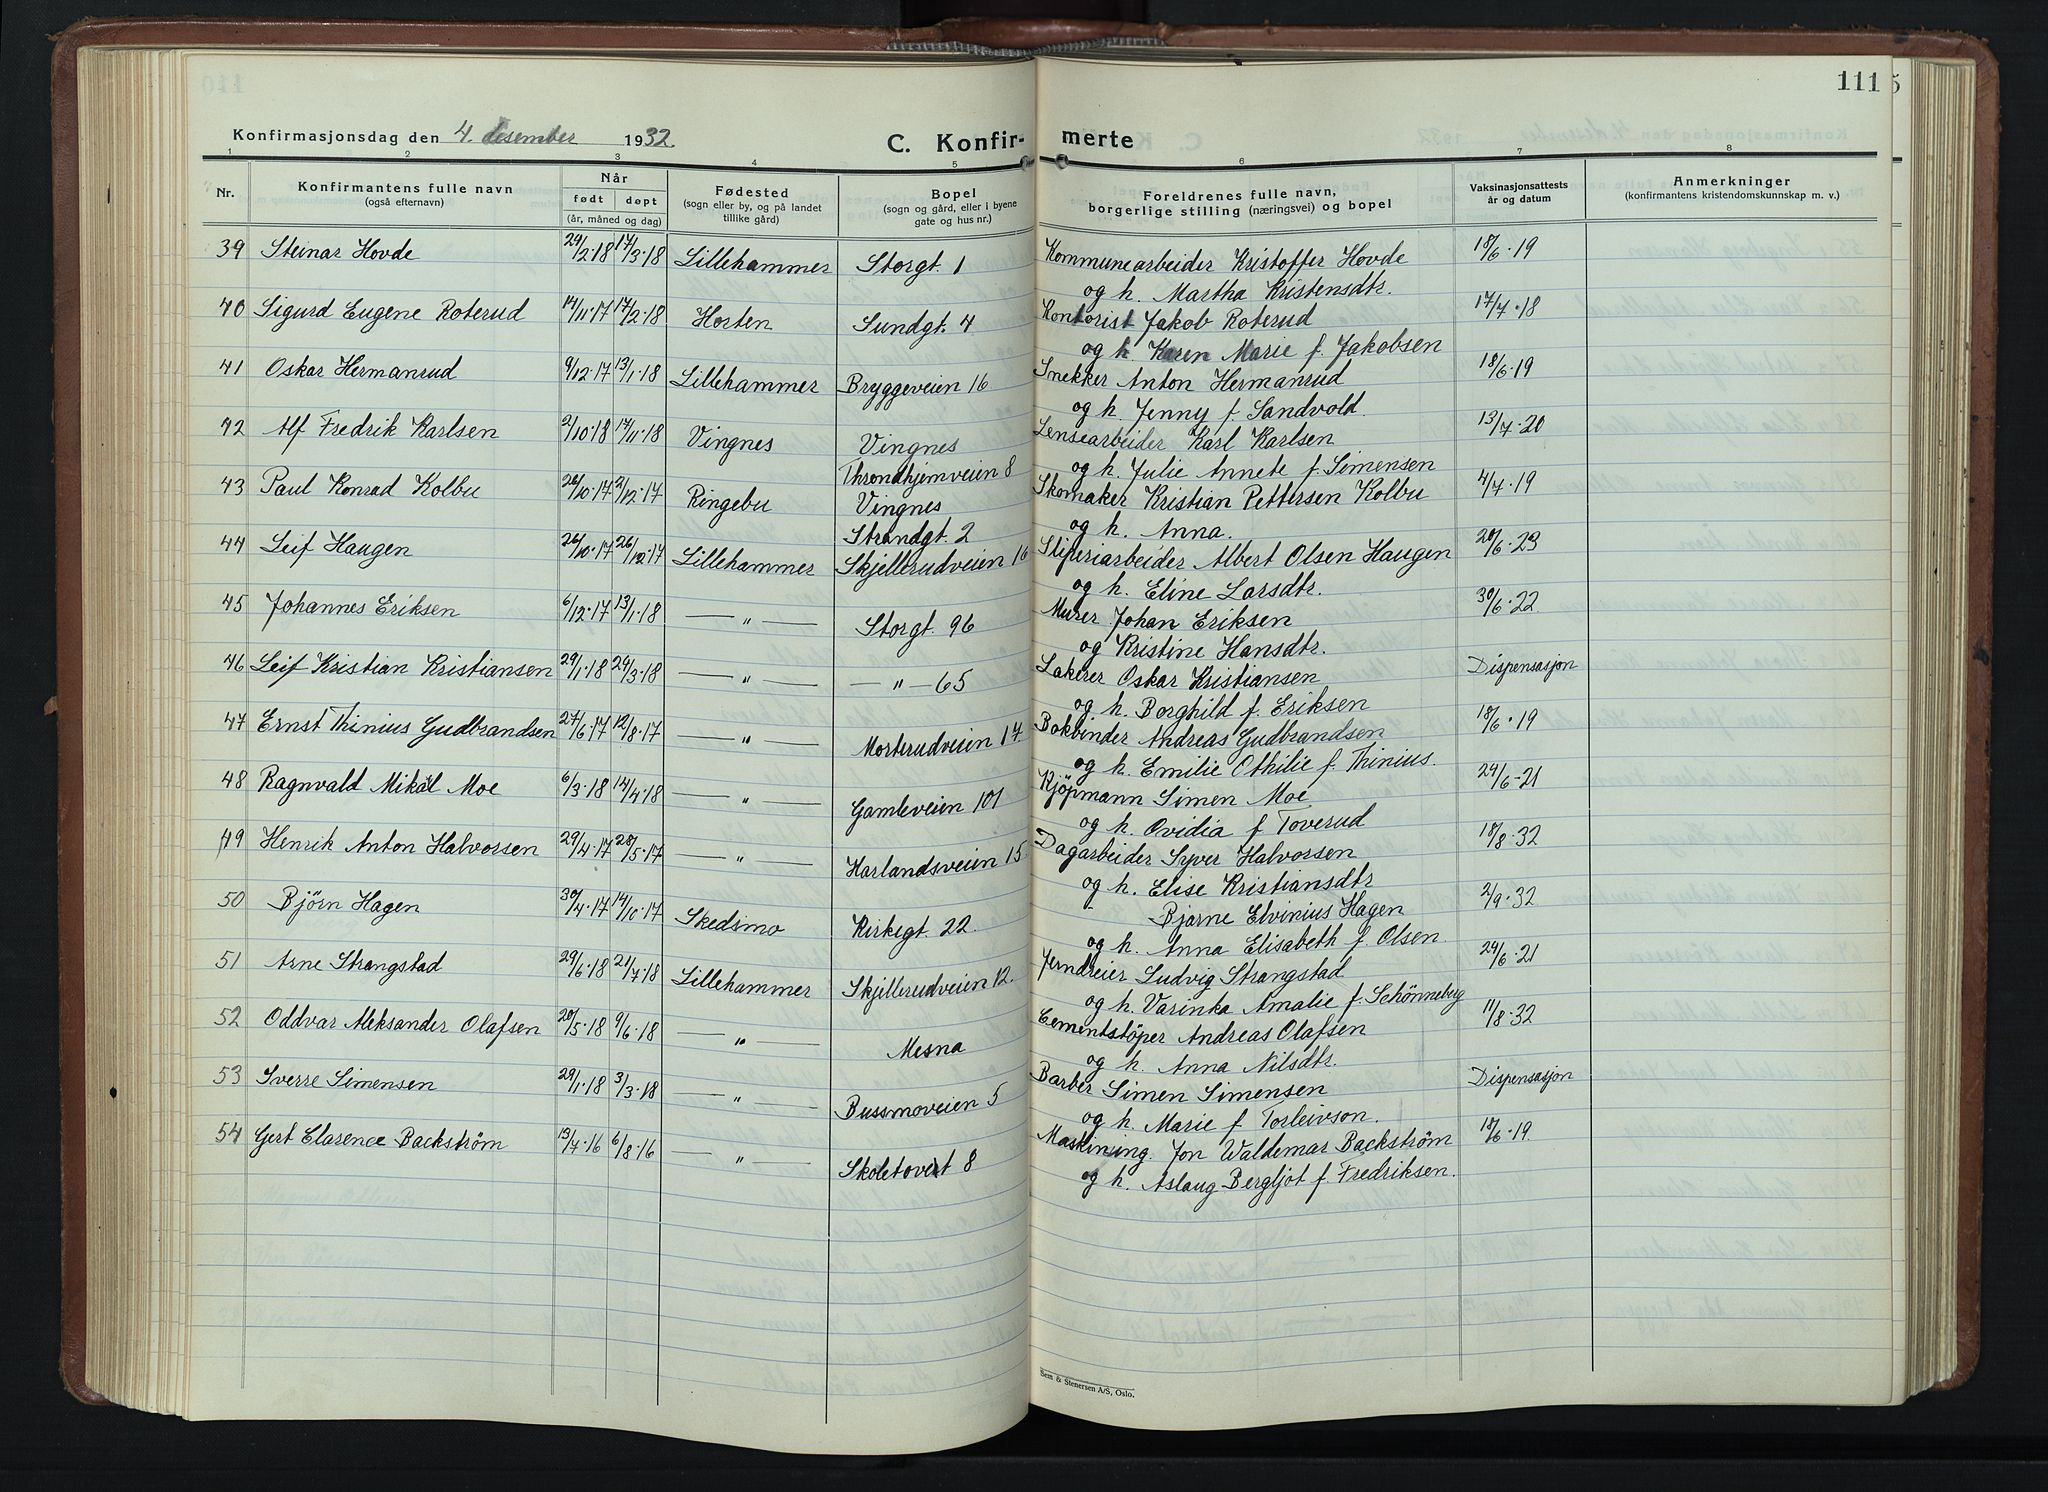 111
Konfirmasjonsdag den 4. desember 1932.
C. Konfir-merte
1 2 3 4 5 6 7 8
Nr. Konfirmantens fulle navn (også efternavn) Når født døpt (år, måned og dag) Fødested (sogn eller by, og på landet tillike gård) Bopel (sogn og gård, eller i byene gate og hus nr.) Foreldrenes fulle navn, borgerlige stilling (næringsvei) og bopel Vaksinasjonsattests år og datum Anmerkninger (konfirmantens kristendomskunnskap m. v.)
39 Steinar Hovde 24/2·18 17/3·18 Lillehammer Storgt. 1 Kommunearbeider Kristoffer Hovde 18/6·19
og h. Martha Kristensdtr.
40 Sigurd Eugene Roterud 14/11·17 17/2·18 Horten Sundgt. 4 Kontorist Jakob Roterud 17/7·18
og h. Karen Marie f. Jakobsen
41 Oskar Hermanrud 9/12·17 13/1·18 Lillehammer Bryggeveien 16 Snekker Anton Hermanrud 18/6·19
og h. Jenny f. Sandvold.
42 Alf Fredrik Karlsen 2/10·18 17/11·18 Vingnes Vingnes Lensearbeider Karl Karlsen 13/7·20
Throndhjemveien 8 og h. Julie Annete f. Simensen
43 Paul Konrad Kolbu 26/10·17 2/12·17 Ringebu Vingnes Skomaker Kristian Pettersen Kolbu 4/7·19
Strandgt. 2 og h. Anna.
44 Leif Haugen 26/10·17 26/12·17 Lillehammer Skjellerudveien 16 Sliperiarbeider Albert Olsen Haugen 20/6·23
og h. Eline Larsdtr.
45 Johannes Eriksen 6/12·17 13/1·18 — " — Storgt. 96 Murer Johan Eriksen 30/6·22
og Kristine Hansdtr.
46 Leif Kristian Kristiansen 29/1·18 24/3·18 — " — — " — 65 Lakerer Oskar Kristiansen Dispensasjon
og h. Borghild f. Eriksen
47 Ernst Thinius Gudbrandsen 27/6·17 12/8·17 — " — Morterudveien 17 Bokbinder Andreas Gudbrandsen 18/6·19
og h. Emilie Othilie f. Thinius.
48 Ragnvald Mikal Moe 6/3·18 14/4·18 — " — Gamleveien 101 Kjöpmann Simen Moe 24/6-21
og h. Ovidia f Toverud
49 Henrik Anton Halvorsen 29/4·17 28/5·17 — " — Harlandsveien 15 Dagarbeider Syver Halvorsen 18/8·32
og h. Elise Kristiansdtr
50 Björn Hagen 30/4·17 14/10·17 Skedsmo Kirkegt. 22. Bjarne Elvinius Hagen 2/9·32
og h. Anna Elisabeth f. Olsen
51 Arne Strangstad 29/6·18 21/7·18 Lillehammer Skjellerudveien 12. Jerndreier Ludvig Strangstad 24/6·21
og h. Varinka Amalie f. Schönneberg
52 Oddvar Aleksander Olafsen 20/5·18 9/6·18 — " — Mesna Cementstöper Andreas Olafsen 11/8·32
og h. Anna Nilsdtr.
53 Sverre Simensen 29/1·18 3/3·18 — " — Bussmoveien 5 Barber Simen Simensen Dispensasjon
og h. Marie f Torleivson.
54 Gert Clarence Backström 13/7·16 6/8·16 — " — Skoletovet 8 Maskining. Jon Waldemar Backström 18/6·19.
og h. Aslaug Bergljot f. Fredriksen.
Sem & Stenersen A/S, Oslo.